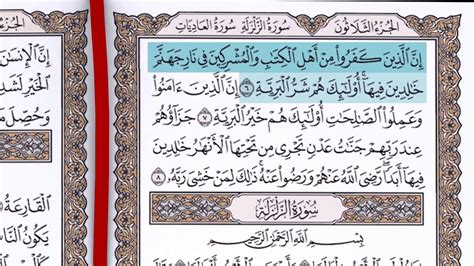 الجُزءُ الثَّلَاثُونَ
سُورَةُ الزَّلْزَلَةِ سُورَةُ العَادِيَات
إِنَّ ٱلَّذِينَ كَفَرُوا۟ مِنْ أَهْلِ ٱلْكِتَـٰبِ وَٱلْمُشْرِكِينَ فِى نَارِ جَهَنَّمَ
خَـٰلِدِينَ فِيهَآ أُو۟لَـٰٓئِكَ هُمْ شَرُّ ٱلْبَرِيَّةِ ٦ إِنَّ ٱلَّذِينَ ءَامَنُوا۟
وَعَمِلُوا۟ ٱلصَّـٰلِحَـٰتِ أُو۟لَـٰٓئِكَ هُمْ خَيْرُ ٱلْبَرِيَّةِ ٧ جَزَآؤُهُمْ
عِندَ رَبِّهِمْ جَنَّـٰتُ عَدْنٍ تَجْرِى مِن تَحْتِهَا ٱلْأَنْهَـٰرُ خَـٰلِدِينَ
فِيهَآ أَبَدًا رَّضِىَ ٱللَّهُ عَنْهُمْ وَرَضُوا۟ عَنْهُ ذَٰلِكَ لِمَنْ خَشِىَ رَبَّهُۥ ٨
سُورَةُ الزَّلْزَلَةِ
بِسْمِ ٱللَّهِ ٱلرَّحْمَـٰنِ ٱلرَّحِيمِ
إِنَّ
ٱلْخَيْرِ
وَحُصِّلَ
ٱلْقَارِعَةُ
يَكُونُ